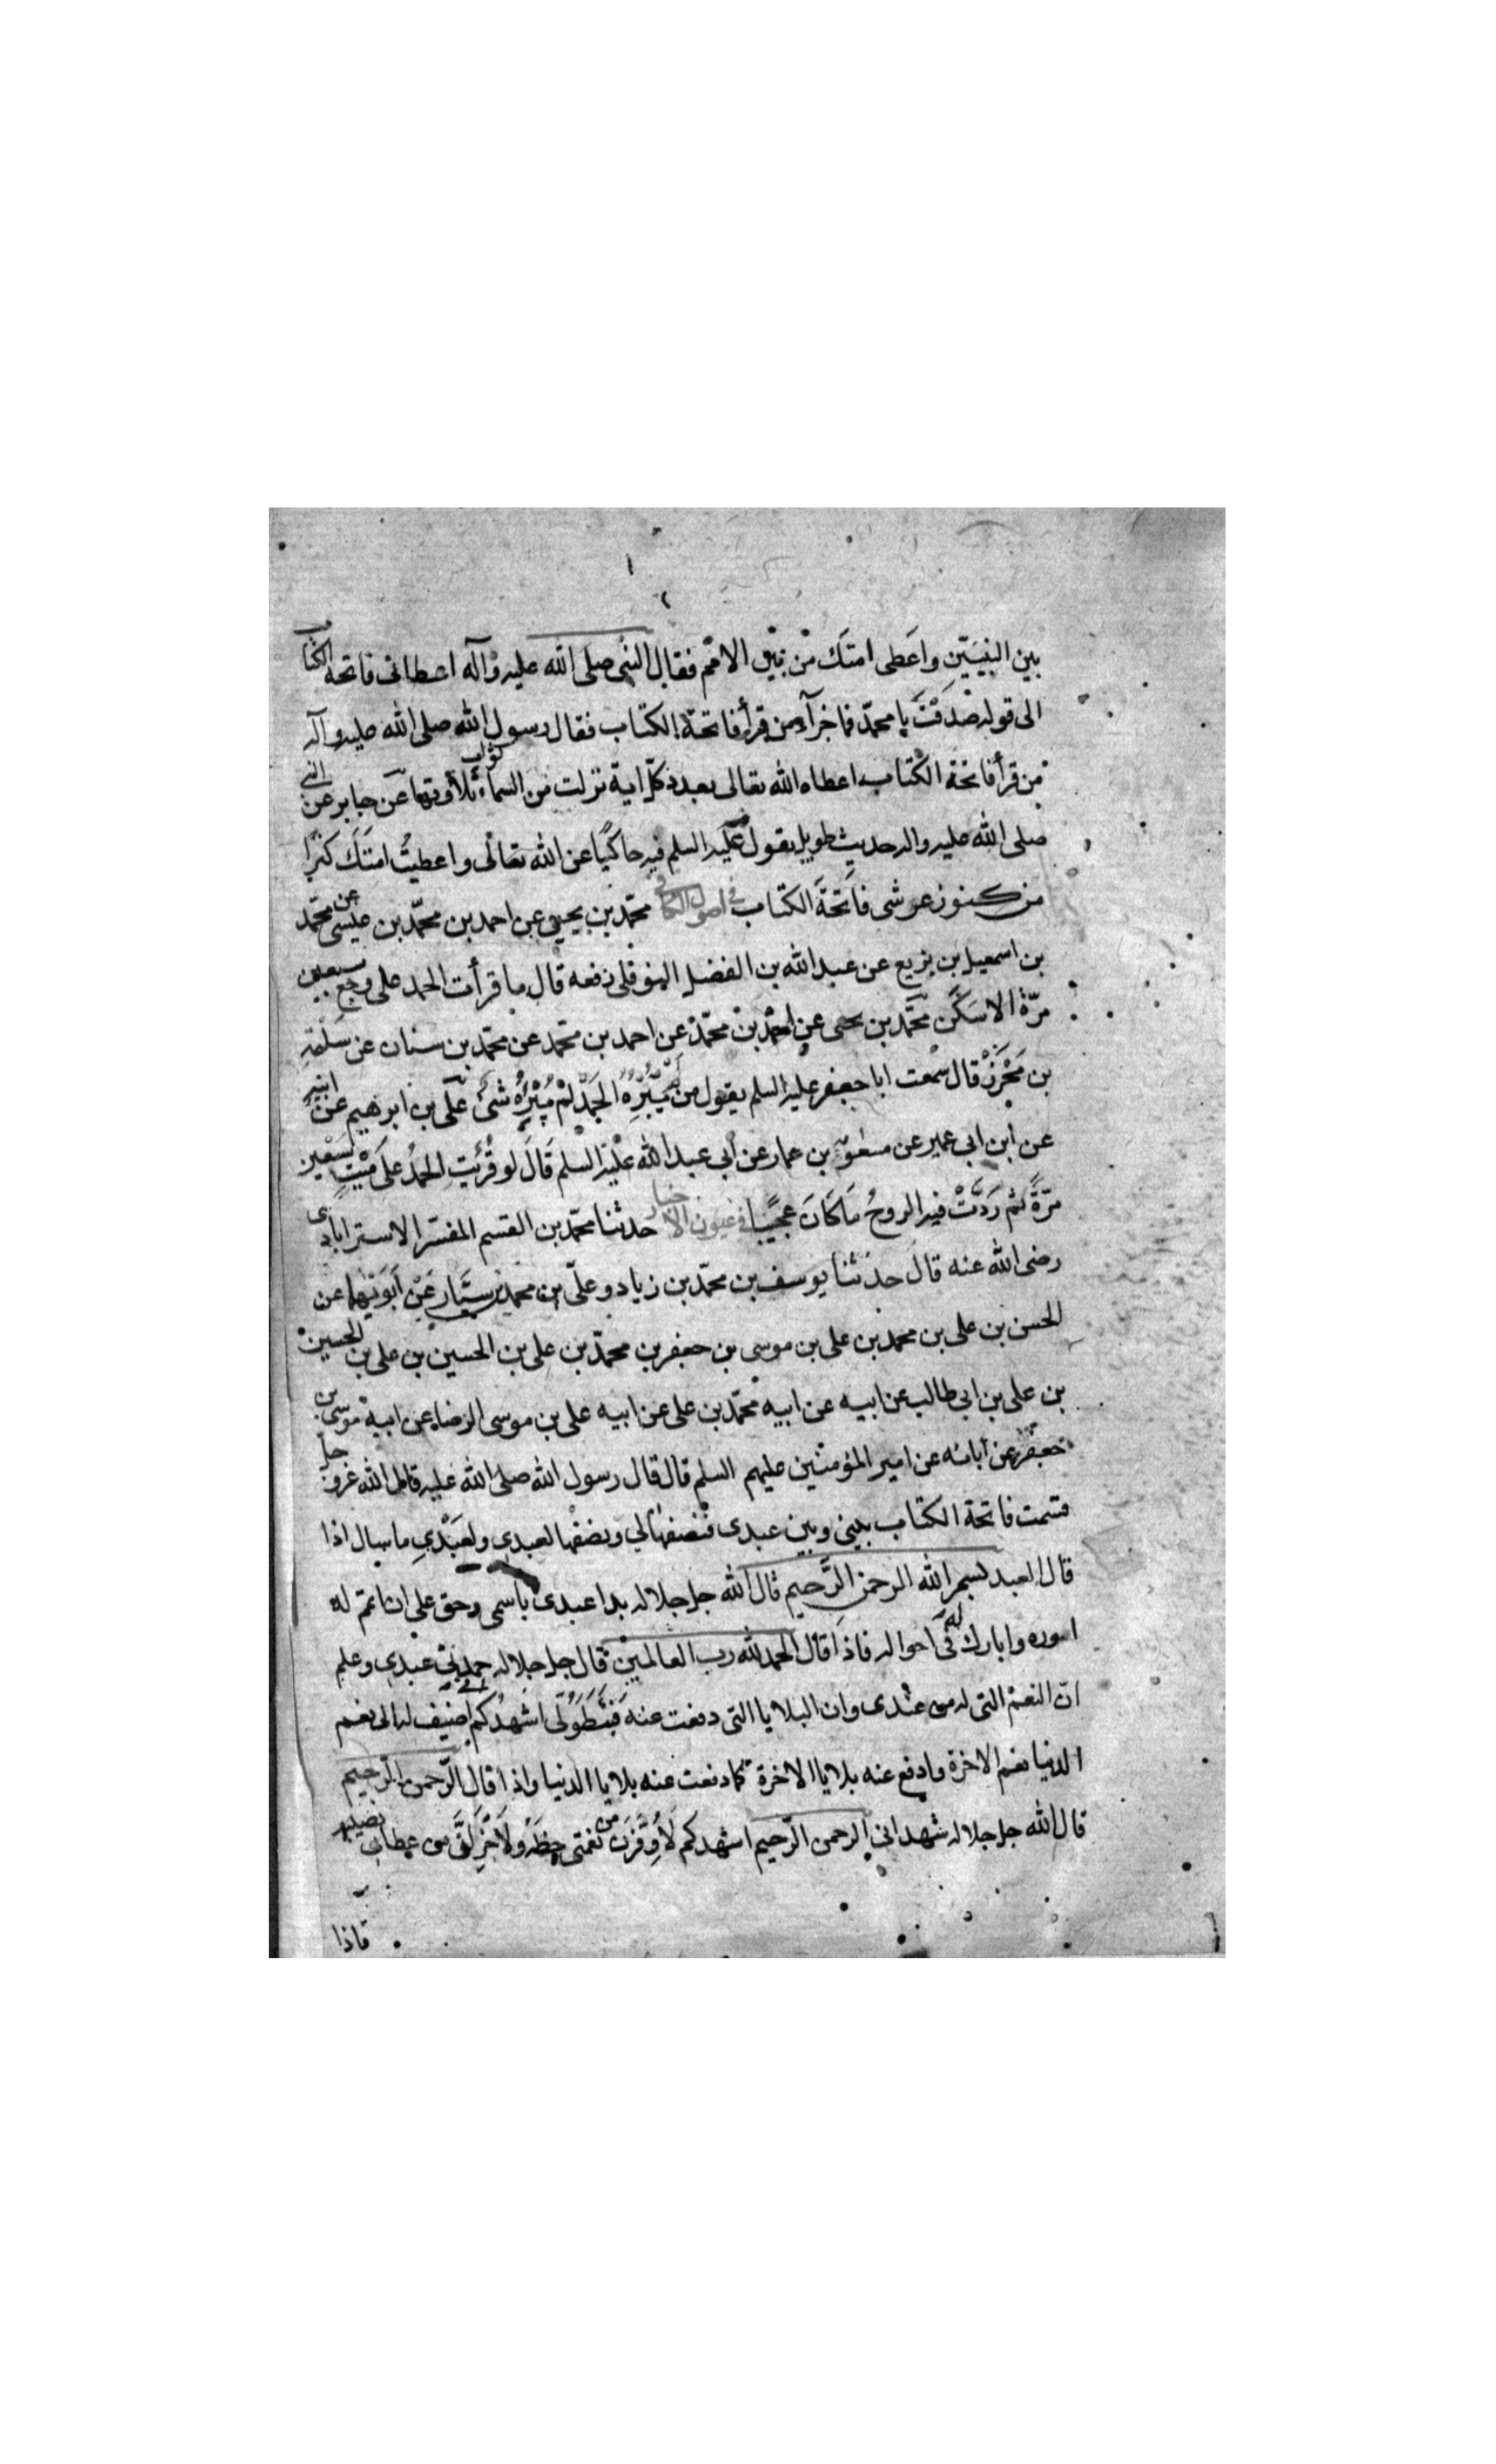 بين النبيّين واعطى امتك من بين الامم فقال النبى صلى الله عليه وآله اعطانى فاتحة الكتاب
الى قوله صدقت يا محمد فما جزآء من قرأ فاتحة الكتاب فقال رسول الله صلى الله عليه وآله
من قرأ فاتحة الكتاب اعطاه الله تعالى بعدد كل اية نزلت من السماء ثواب تلاوتها عن جابر عن النبى
صلى الله عليه واله حديث طويل يقول عليه السلم فيه حاكيًا عن الله تعالى واعطيتُ امتَك كنزًا
من كنوز عرشى فاتحةَ الكتاب فى اصول الكافى محمّد بن يحيى عن احمد بن محمّد بن عيسى عن محمّد
بن اسمعيل بن بزيع عن عبد الله بن الفضل النوفلى رفعه قال ما قرأت الحمد على وجع سبعين
مرّة الا سكن محمّد بن يحيى عن احمد بن محمّد عن احمد بن محمد عن محمّد بن سنان عن سلمة
بن محرز قال سمعت ابا جعفر عليه السلم يقول من لم يُبْرِهُ الحمد لم يُبْرِهُ شىء على بن ابرهيم عن ابيه
عن ابن ابى عمير عن معوية بن عمار عن ابى عبد الله عليه السلم قال لو قُرِئَتِ الحمدُ على مَيّتٍ سبعين
مرّةً ثم رُدَّتْ فيه الروحُ ما كان عجبًا فى عيون الاخبار حدثنا محمّد بن القسم المفسّر الاسترابادى
رضى الله عنه قال حدثنا يوسف بن محمّد بن زياد وعلّى بن محمد بن سيَّار عن ابويهما عن
الحسن بن على بن محمد بن على بن موسى بن جعفر بن محمّد بن على بن الحسين بن على بن الحسين
بن على بن ابى طالب عن ابيه عن ابيه محمّد بن على عن ابيه على بن موسى الرضا عن ابيه موسى بن
جعفر عن ابائه عن امير المؤمنين عليهم السلم قال قال رسول الله صلى الله عليه قال الله عز وجل
قسمت فاتحة الكتاب بينى وبين عبدى فنصفها لي ونصفها لعبدى ولعبدي ما سال اذا
قال العبد بسم الله الرحمن الرَّحيم قال الله جل جلاله بدا عبدى باسمى وحق على ان اتمم له
اموره وابارك له فى احواله فاذا قال الحمد لله رب العالمين قال جل جلاله حمدنى عبدى وعلم
انّ النعم التى له من عندى وان البلايا التى دفعت عنه فبتطوّلى اشهدكم انى اضيف له الى نعم
الدنيا نعم الاخرة وادفع عنه بلايا الاخرة كما دفعت عنه بلايا الدنيا واذا قال الرّحمن الرّحيم
قال الله جل جلاله شهد انى الرحمن الرّحيم اشهدكم لاُوفّرن من نعمتى حظه ولاجزلنّ من عطائى نصيبه
فاذا